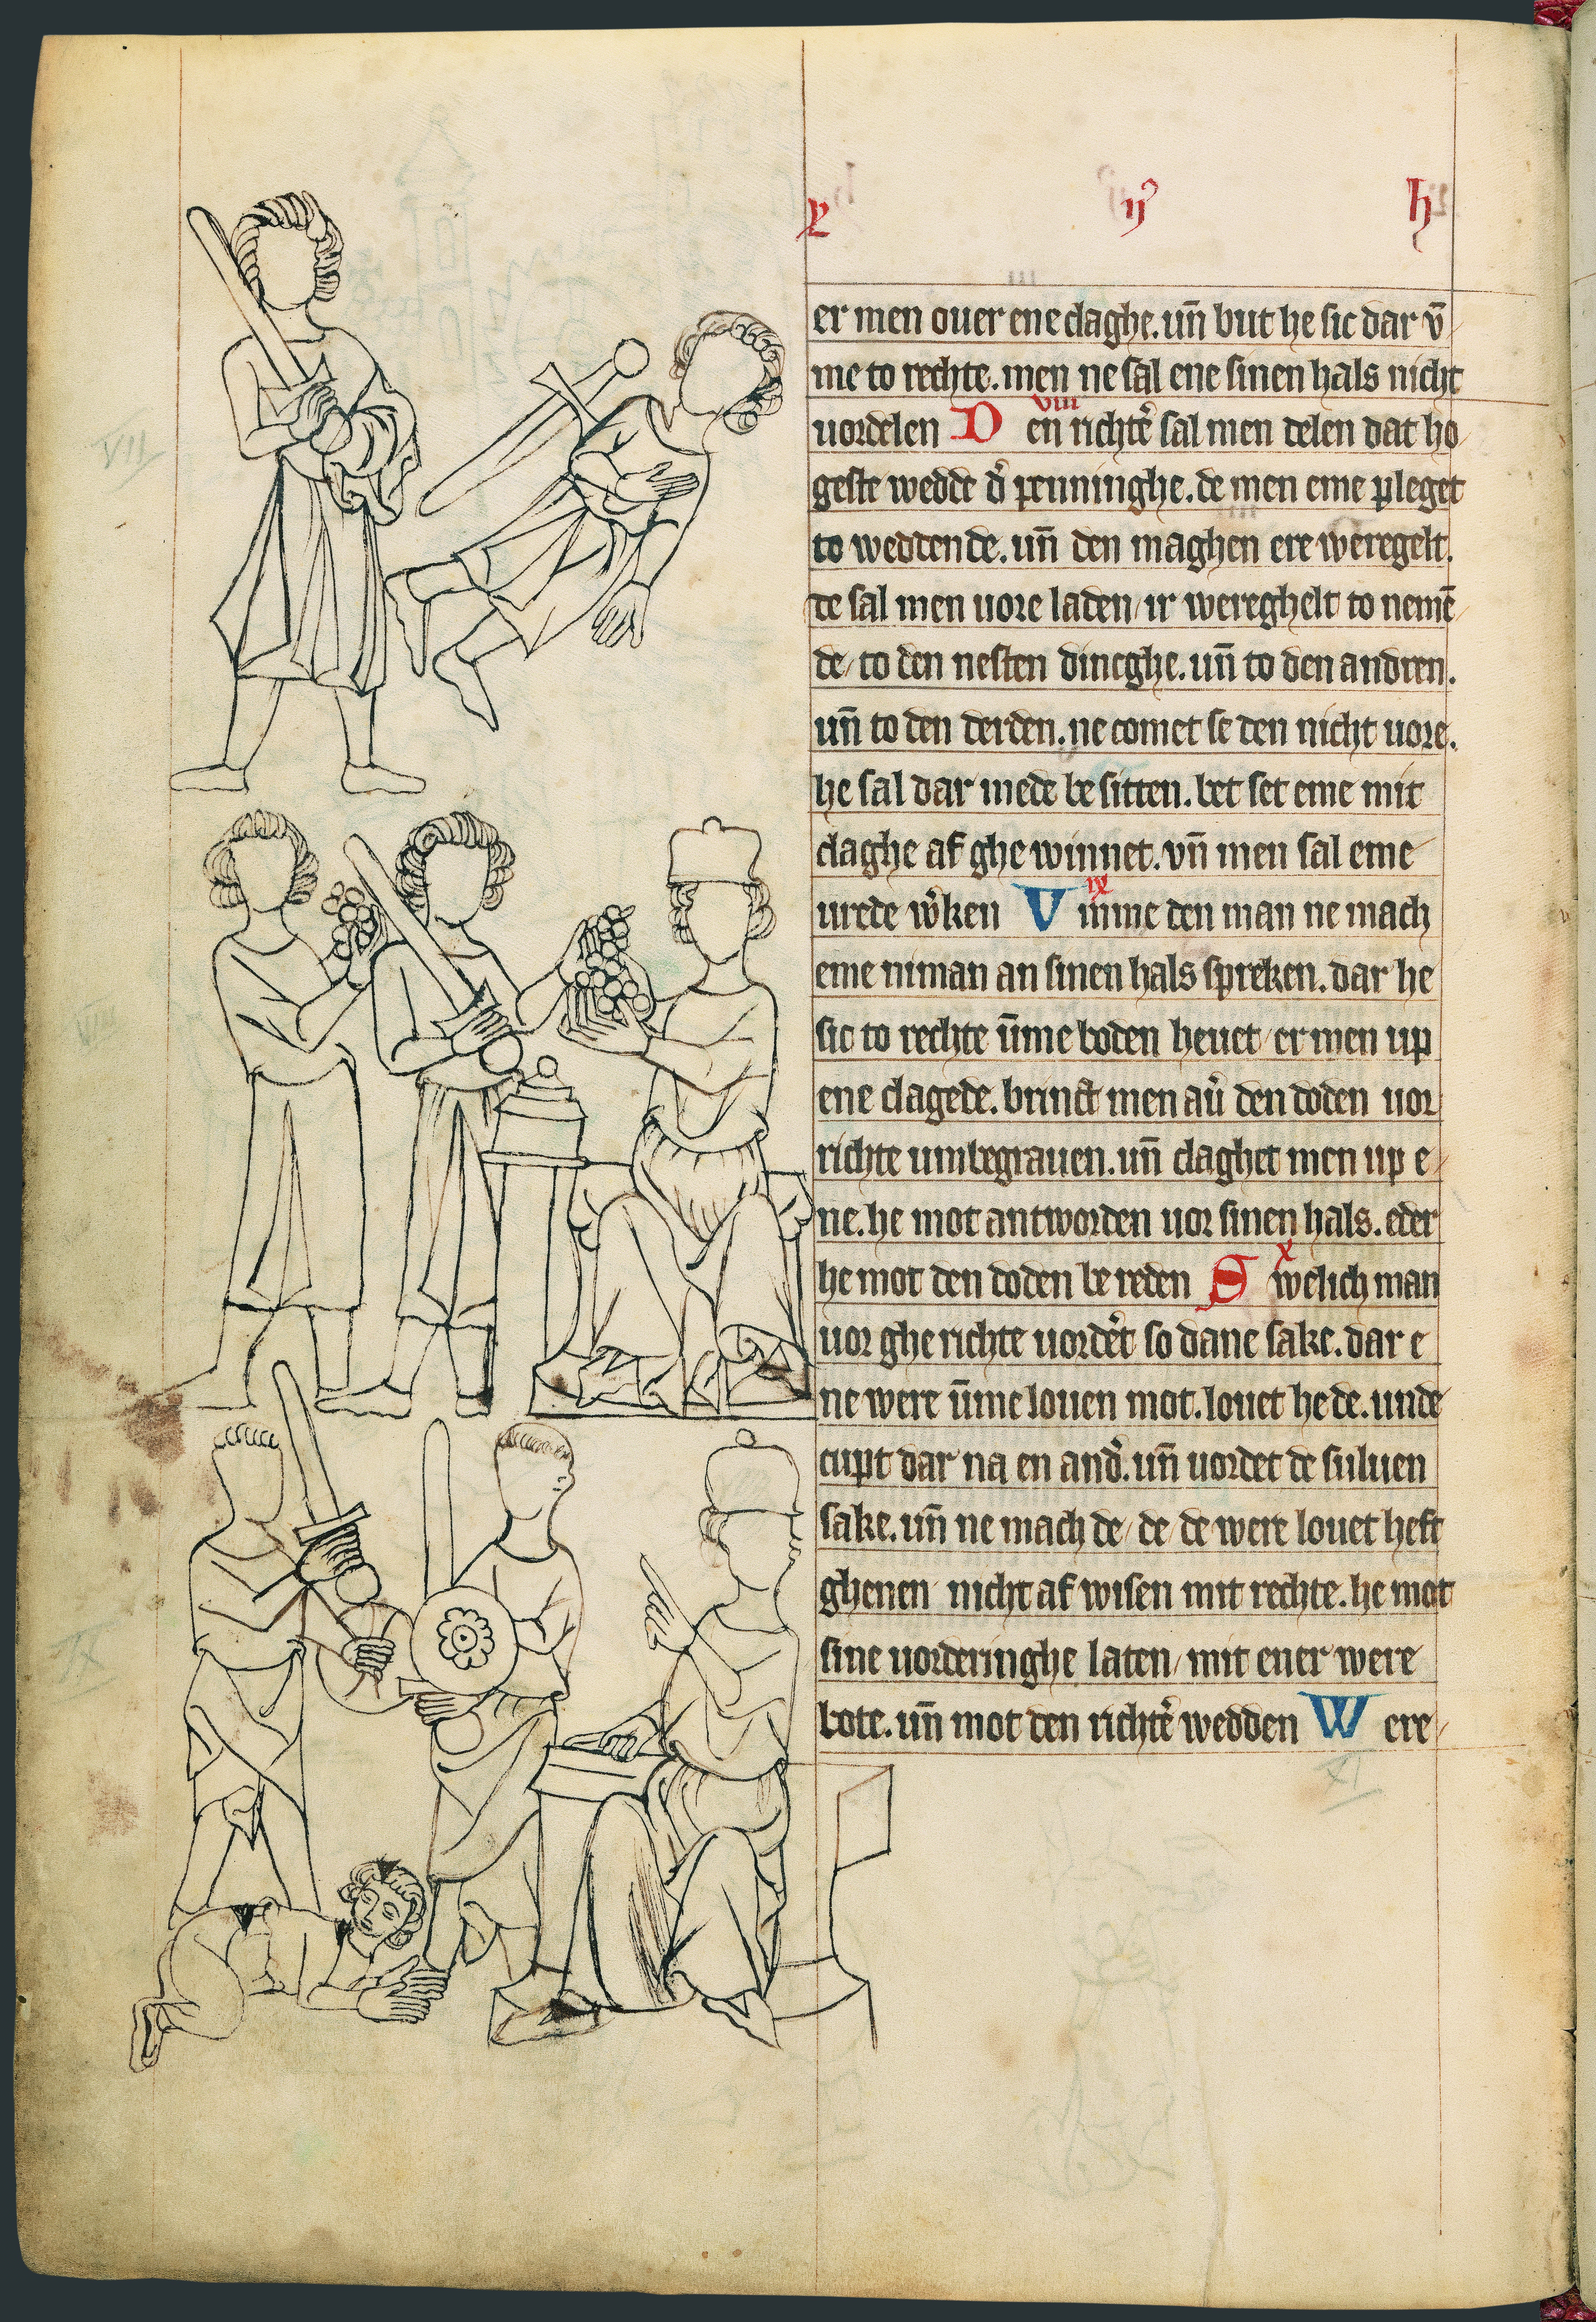 x ij° h
er men ouer ene claghe. un̄ but he sic dar v̄
me to rechte. men ne sal ene sinen hals nicht
uordelen D viii en richt͛e sal men delen dat ho
geste wedde d͛ penninghe. de men eme pleget
to weddende. un̄ den maghen ere weregelt.
de sal men uore laden / ir wereghelt to nemē
de / to den nesten dincghe. un̄ to den andren.
un̄ to den derden. ne comet se den nicht uore.
he sal dar mede be sitten. bet set eme mit
claghe af ghe winnet. vn̄ men sal eme
urede w͛ken V ix mme den man ne mach
eme niman an sinen hals spreken. dar he
sic to rechte ūme boden heuet / er men up
ene clagede. brinct men au͛ den doden uor
richte umbegrauen. un̄ claghet men up e
ne. he mot antworden uor sinen hals. eder
he mot den doden be reden S x welich man
uor ghe richte uord͛et so dane sake. dar e
ne were ūme louen mot. louet he de. unde
cupt dar na en and͛. un̄ uordet de suluen
sake. un̄ ne mach de / de / de were louet heft
ghenen nicht af wisen mit rechte. he mot
sine uorderinghe laten / mit ener were
bote. un̄ mot den richt͛e wedden W ere
VII
VIII
IX
XI